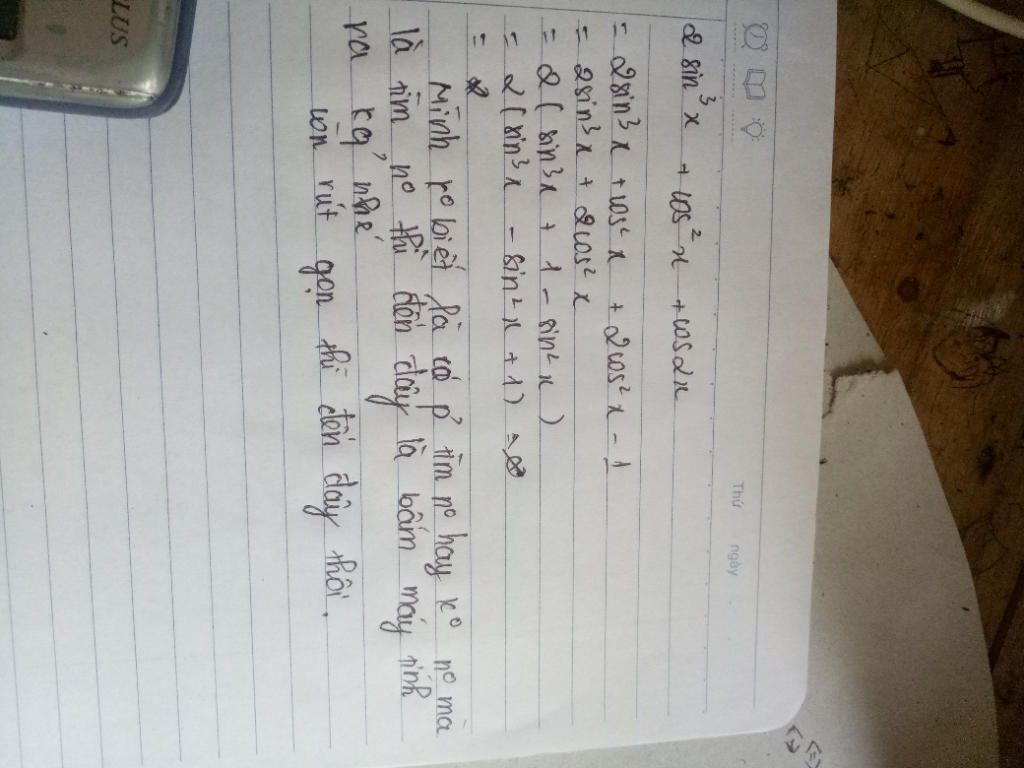 Thứ ngày
2 sin³x + cos²x + cos2x
= 2sin³x + cos²x + 2cos²x - 1
= 2sin³x + 2cos²x
= 2 ( sin³x + 1 - sin²x )
= 2 ( sin³x - sin²x + 1 )
=
Mình k° biết là có p' tìm n° hay k° n° mà
là tìm n° thì đến đây là bấm máy tính
ra kq' nhé
còn rút gọn thì đến đây thôi.